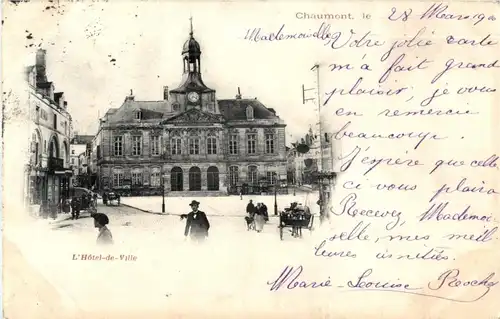 Chaumont, le 28 Mars 190
Mademoiselle,
Votre jolie carte
m'a fait grand
plaisir, je vous
en remercie
beaucoup.
J'espère que celle
ci vous plaira
Recevez Mademoi-
selle, mes meil-
leures amitiés.
Marie-Louise Roche
L'Hôtel-de-Ville